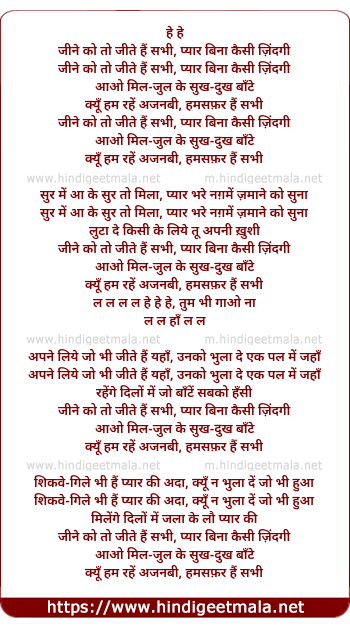 हे हे
जीने को तो जीते हैं सभी, प्यार बिना कैसी ज़िंदगी
जीने को तो जीते हैं सभी, प्यार बिना कैसी ज़िंदगी
आओ मिल-जुल के सुख-दुख बाँटे
क्यूँ हम रहें अजनबी, हमसफ़र हैं सभी
जीने को तो जीते हैं सभी, प्यार बिना कैसी ज़िंदगी
आओ मिल-जुल के सुख-दुख बाँटे
क्यूँ हम रहें अजनबी, हमसफ़र हैं सभी
www.hindigeetmala.net m.hindigeetmala.net
सुर में आ के सुर तो मिला, प्यार भरे नग़में ज़माने को सुना
सुर में आ के सुर तो मिला, प्यार भरे नग़में ज़माने को सुना
लुटा दे किसी के लिये तू अपनी ख़ुशी
जीने को तो जीते हैं सभी, प्यार बिना कैसी ज़िंदगी
आओ मिल-जुल के सुख-दुख बाँटे
क्यूँ हम रहें अजनबी, हमसफ़र हैं सभी
ल ल ल ल हे हे हे, तुम भी गाओ ना
ल ल हाँ ल ल
www.hindigeetmala.net m.hindigeetmala.net
अपने लिये जो भी जीते हैं यहाँ, उनको भुला दे एक पल में जहाँ
अपने लिये जो भी जीते हैं यहाँ, उनको भुला दे एक पल में जहाँ
रहेंगे दिलों में जो बाँटें सबको हँसी
जीने को तो जीते हैं सभी, प्यार बिना कैसी ज़िंदगी
आओ मिल-जुल के सुख-दुख बाँटे
क्यूँ हम रहें अजनबी, हमसफ़र हैं सभी
www.hindigeetmala.net m.hindigeetmala.net
शिकवे-गिले भी हैं प्यार की अदा, क्यूँ न भुला दें जो भी हुआ
शिकवे-गिले भी हैं प्यार की अदा, क्यूँ न भुला दें जो भी हुआ
मिलेंगे दिलों में जला के लौ प्यार की
जीने को तो जीते हैं सभी, प्यार बिना कैसी ज़िंदगी
आओ मिल-जुल के सुख-दुख बाँटे
क्यूँ हम रहें अजनबी, हमसफ़र हैं सभी
https://www.hindigeetmala.net